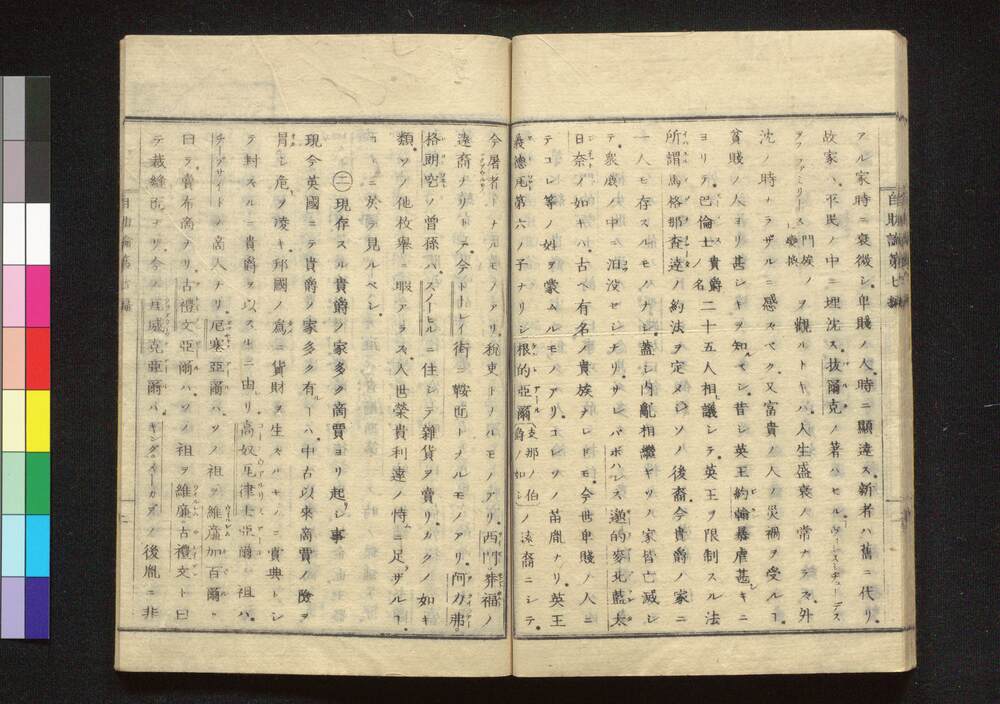 自助論第七編
アル家時ニ衰微シ卑賤ノ人時ニ顯達ス新者ハ舊ニ代リ
故家ハ平民ノ中ニ埋沈ス抜爾克ノ著ハセル
門族ノ變換ヲ觀ルトキハ人生盛衰ノ常ナラズ外
沈ノ時ナラザルニ感ズベク又富貴ノ人ノ災禍ヲ受ルコ
貧賤ノ人ヨリ甚シキヲ知ルベシ昔シ英王約翰暴虐甚シキニ
ヨリテ巴倫士貴爵ノ名二十五人相議シテ英王ヲ限制スル法
所謂馬格那査達ノ約法ヲ定メシソノ後裔今貴爵ノ家ニ
一人モ存スルモノナシ蓋シ内亂相繼ギソノ家皆亡滅シ
テ衆庶ノ中ニ汨没セシナリサレバボハレス
日奈ノ如キハ古ヘ有名ノ貴族ナレドモ今世卑賤ノ人ニ
テコレ等ノ姓ヲ蒙ムルモノアリコレソノ苗胤ナリ英王
義德瓦第六ノ子ナリシ根的亞爾支那ノ伯爵ノ如シノ遠裔ニシテ
今屠者トナルモノアリ税吏トナルモノアリ西門
遠裔ナリトテ今トーレイ街ニ鞍匠トナルモノアリ
格朗空ノ曾孫ハスノーヒルニ住シテ雜貨ヲ賣リカクノ如キ
類ソノ他枚擧ニ暇アラズ人世榮貴利達ノ恃ニ足ラザルコ
コヽニ於テ見ルベシ
㊁現存スル貴爵ノ家多ク商賈ヨリ起リシ事
現今英國ニテ貴爵ノ家多ク有ルーハ中古以來商賈ノ險ヲ
冐シ危ヲ凌ギ邦國ノ爲ニ貨財ヲ生スルモノニ賞典トシ
テ封スルニ貴爵ヲ以スルニ由レリ高奴瓦律士亞爾ノ祖ハ
チープサイドノ商人ナリ厄塞亞爾ハソノ祖ヲ維廉加百爾ト
曰ヲ賣布商ヲリ古禮文亞爾ハソノ祖ヲ維廉古禮文ト曰
テ裁縫匠ヨリ今ノ瓦威克亞爾ハキングメーカアノ後胤ニ非